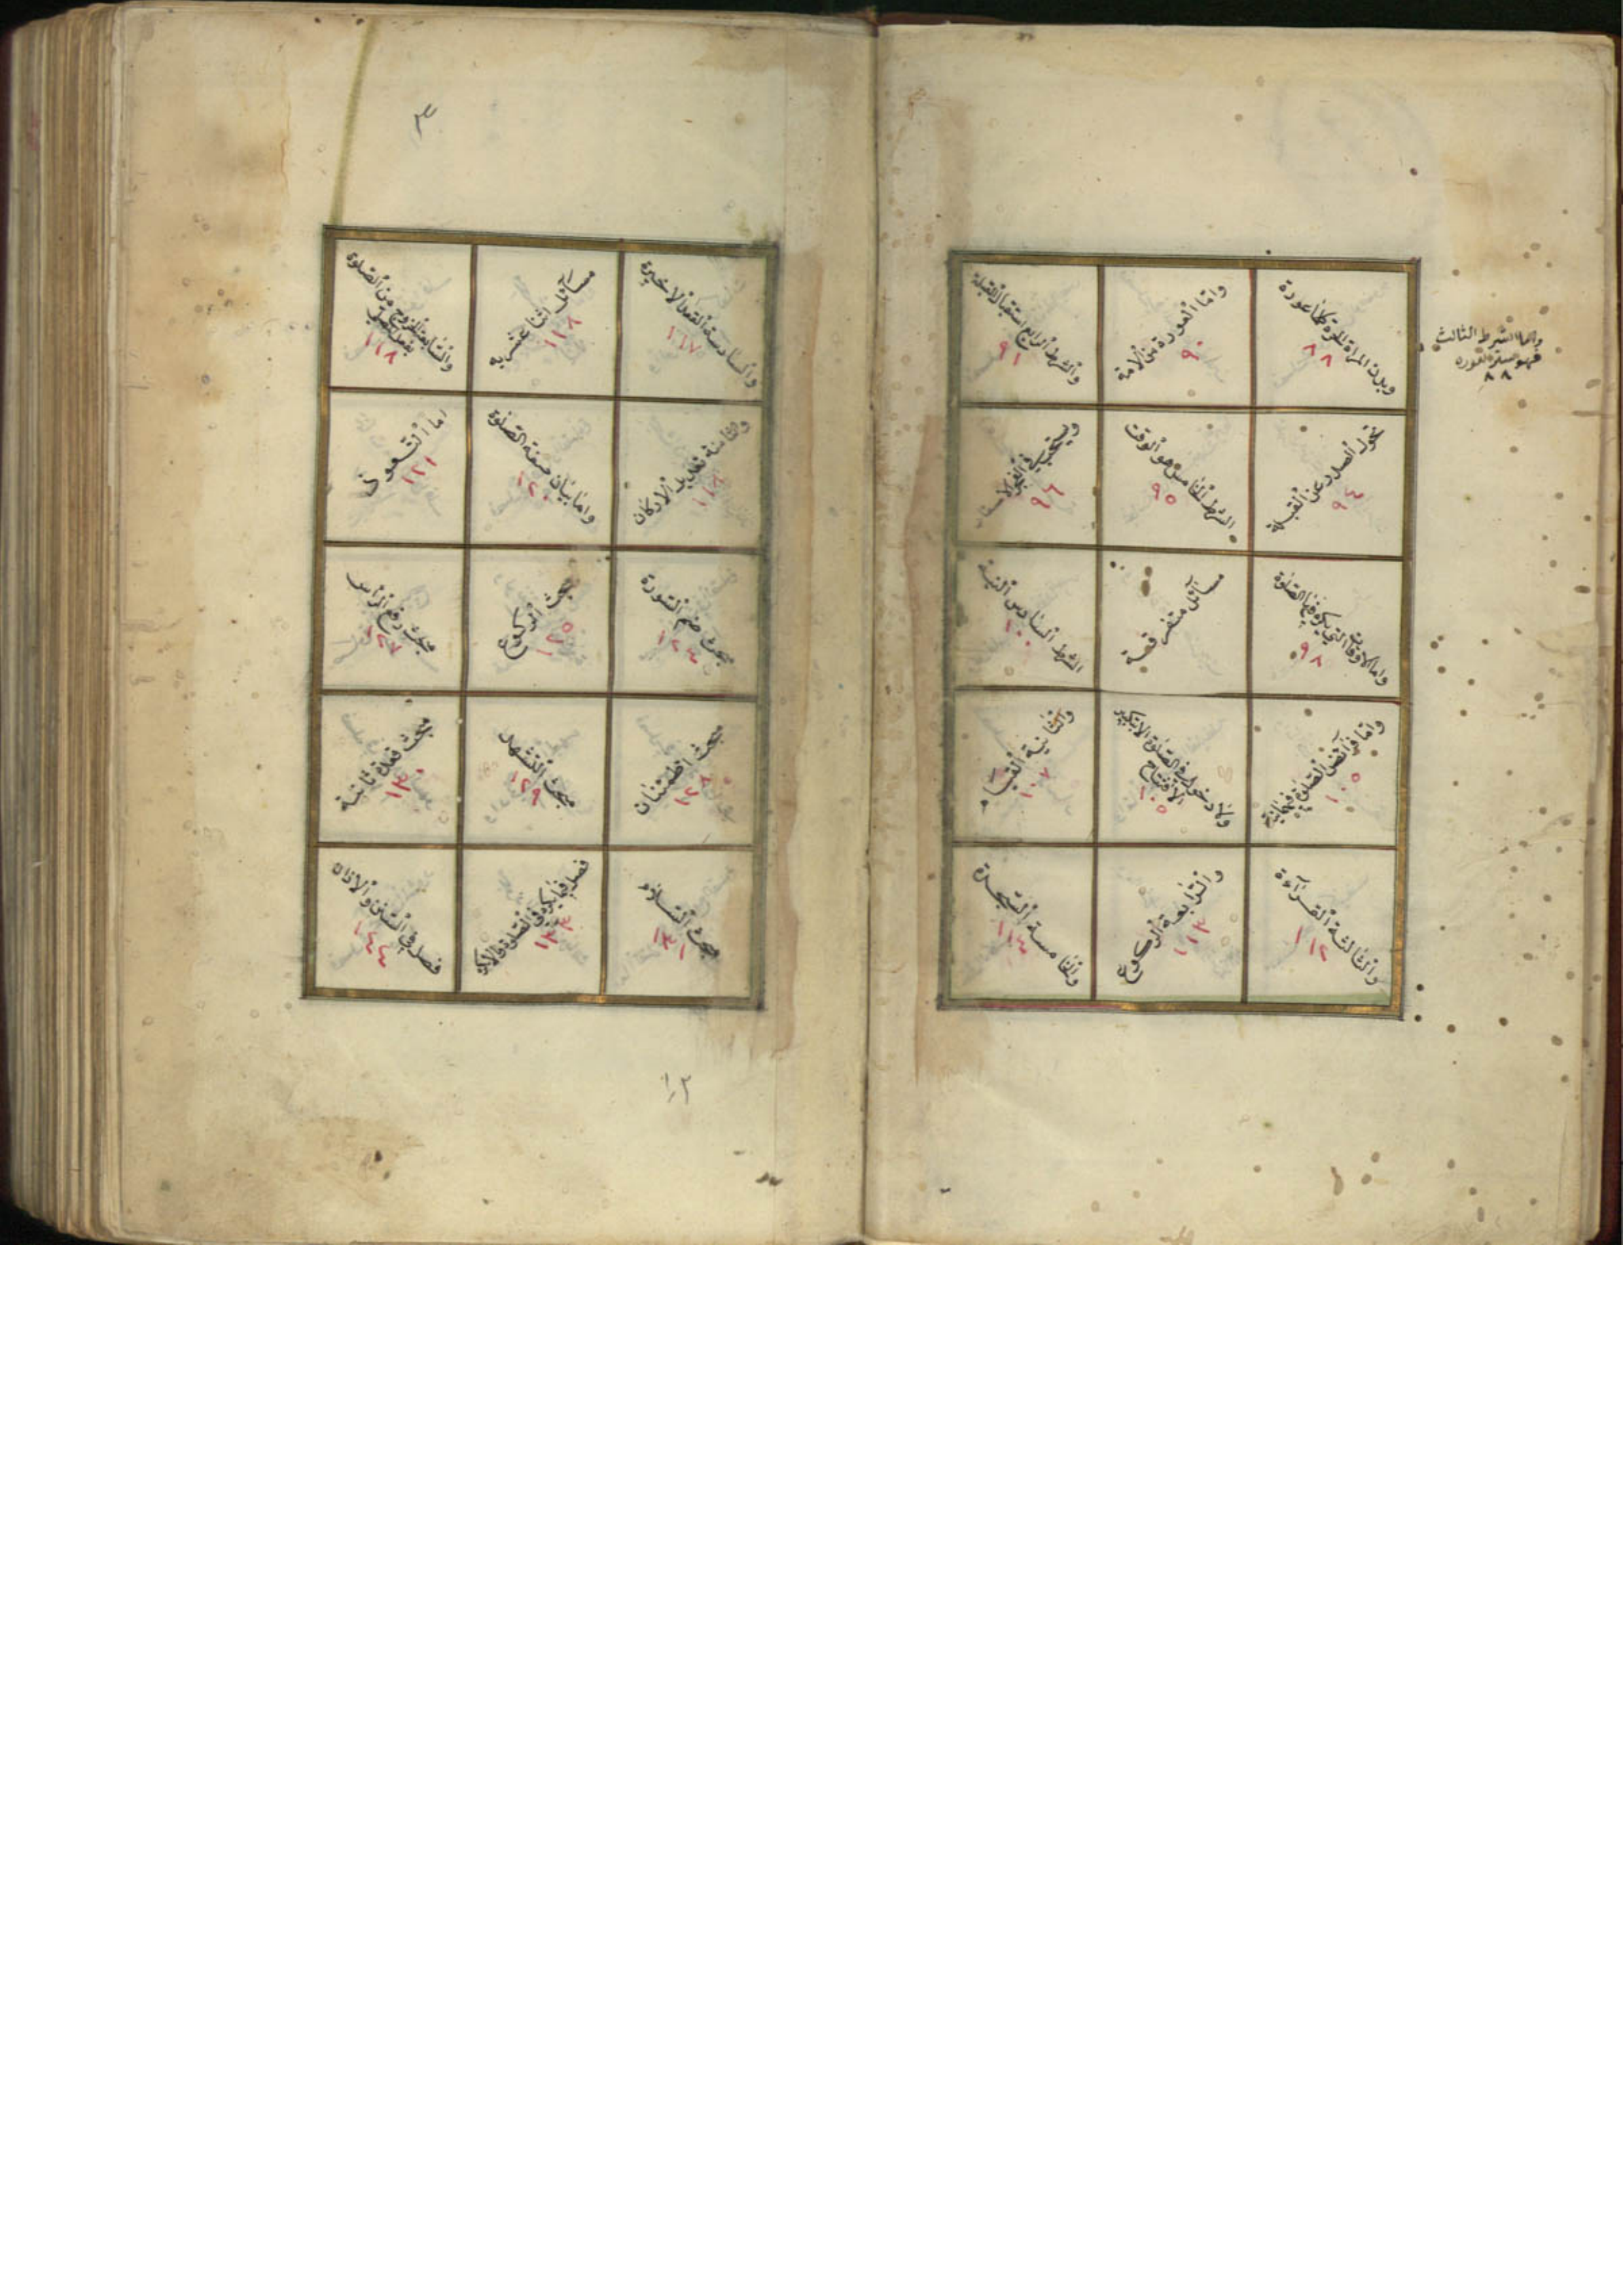 واما الشرط الثالث
فهو ستر العورة
٨٨
وبدن المراة الحرة كلها عورة
٨٨
واما العورة من الامة
٩٠
والشرط الرابع استقبال القبلة
٩١
تحول الصدر عن القبلة
٩٤
الشرط الخامس هو الوقت
٩٥
ويستحب في الفجر الاسفار
٩٦
واما الاوقات التي يكره فيها الصلوة
٩٨
مسائل متفرقة
الشرط السادس النية
١٠٠
واما فرائض الصلوة فثمانية
١٠٥
ولا دخول في الصلوة الا بتكبير
الافتتاح
١٠٥
والثانية القيام
١٠٧
والثالثة القراءة
١١٢
والرابعة الركوع
١١٣
والخامسة السجدة
١١٤
٣
والسادسة القعدة الاخيرة
١١٧
مسائل اثنا عشريه
١١٨
والسابعة الخروج من الصلوة
بفعل المصلي
١١٨
والثامنة تعديل الاركان
واما بيان صفة الصلوة
١٢٠
اما التعوذ
١٢١
مبحث ضم السورة
١٢٤
مبحث الركوع
١٢٥
مبحث رفع الراس
١٢٧
مبحث اطمئنان
١٢٨
مبحث التشهد
١٢٩
مبحث قعدة ثانية
١٣٠
مبحث السلام
١٣١
فصل فيما يكره في الصلوة
١٣٣
فصل في السنن
١٤٤